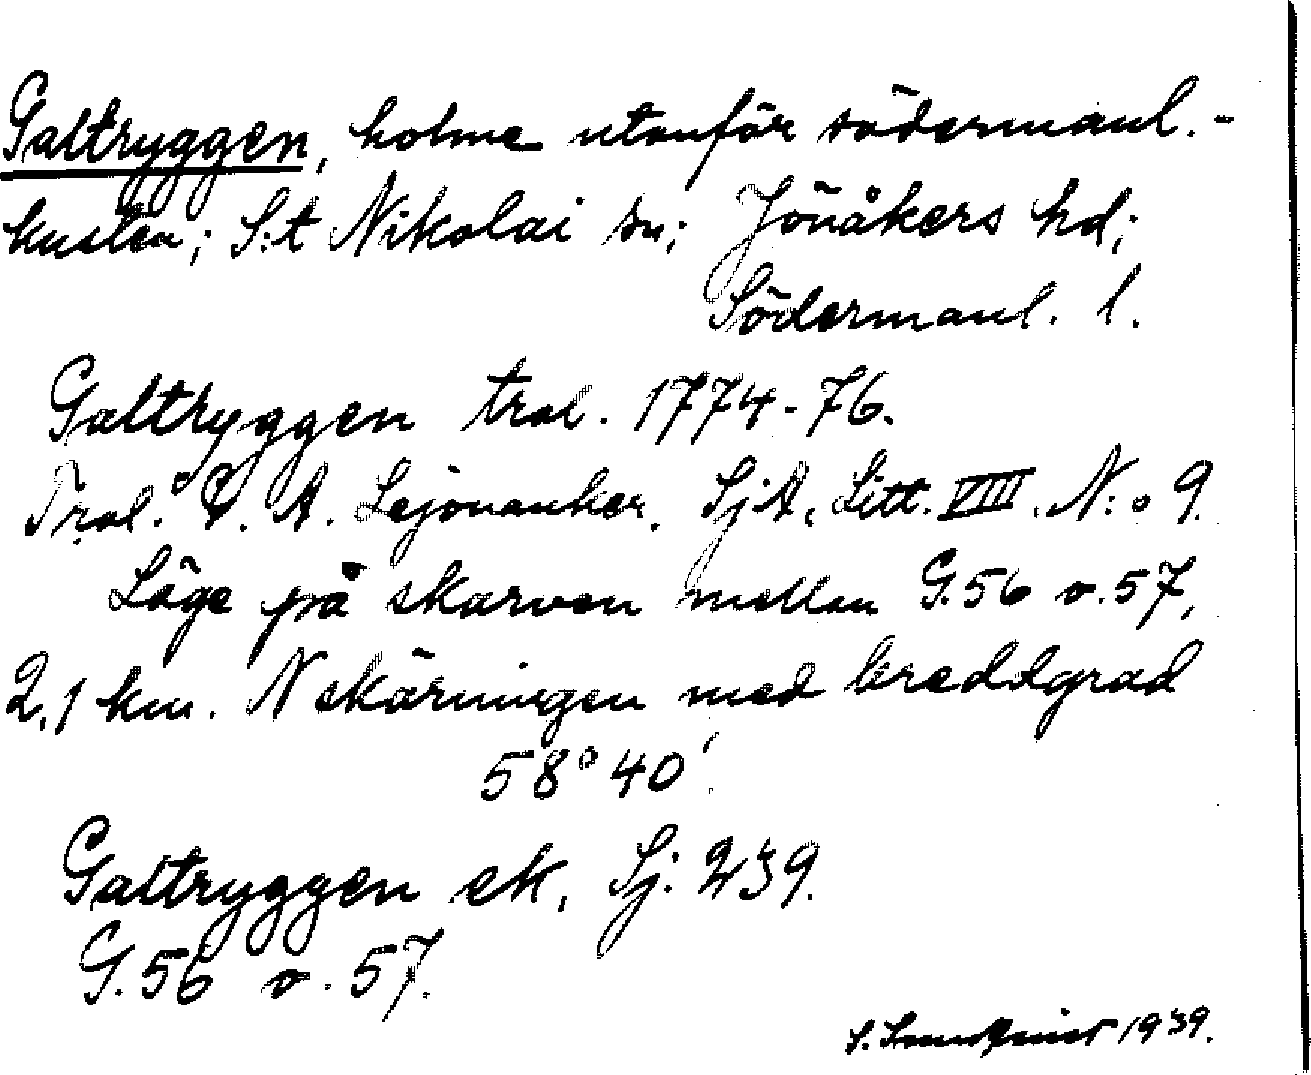 Galtryggen, holme utanför södermanl.-
kusten; S:t Nikolai sn; Jönåkers hd;
Södermanl. l.
Galtryggen tral. 1774-76.
Tral. C. A. Lejonanker. SjA. Litt. VIII. N:o 9.
Läge på skarven mellan G.56 o. 57,
2,1 km. N skärningen med breddgrad
58° 40'.
Galtryggen ek. Sj. 239.
G. 56 o. 57.
1939.